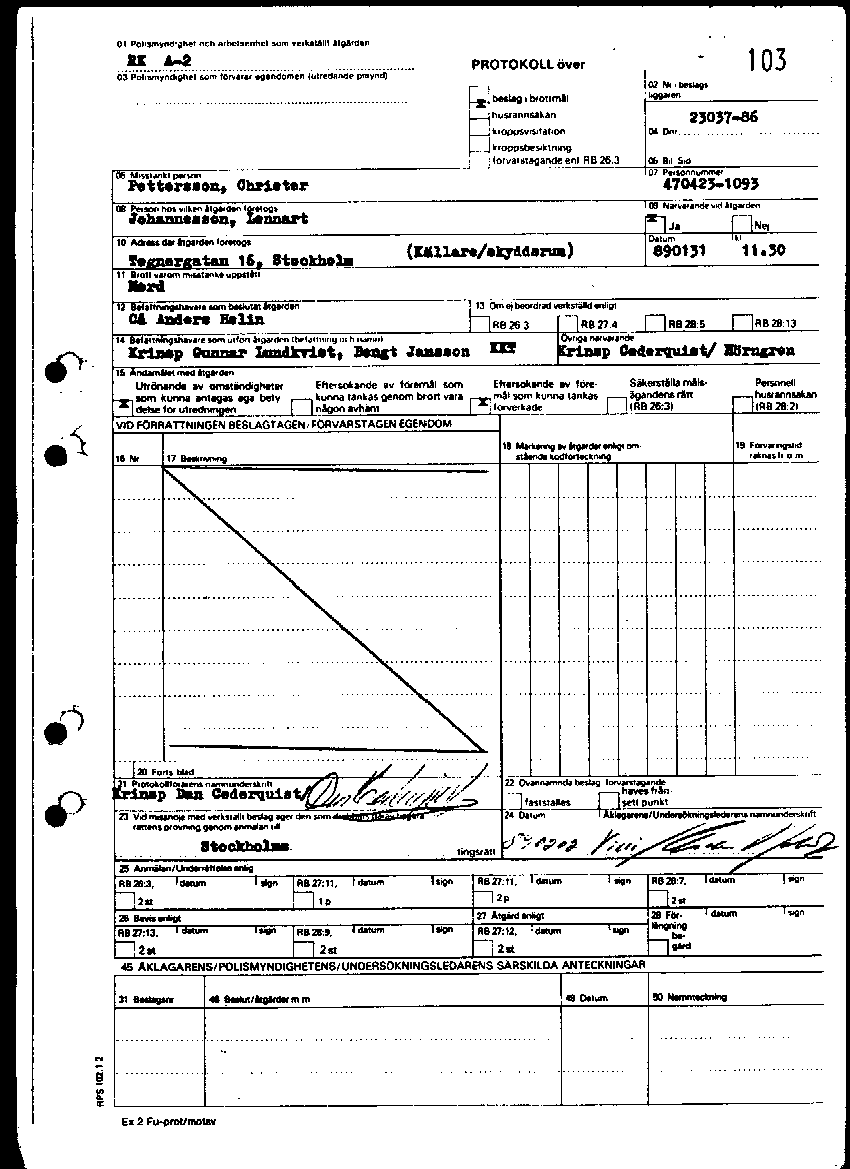 01 Polismyndighet och arbetsenhet som verkställt åtgärden
RK A-2
03 Polismyndighet som förvarar egendomen (utredande pmynd)
PROTOKOLL över
103
beslag i brottmål
husrannsakan
kroppsvisitation
kroppsbesiktning
förvarstagande enl RB 26.3
02 Nr i beslags
liggaren
23037-86
04 Dnr
05 Bil Sid
06 Misstänkt person
Pettersson, Christer
07 Personnummer
470423-1093
08 Person hos vilken åtgärden företogs
Johannesson, Lennart
09 Närvarande vid åtgärden
Ja
Nej
10 Adress där åtgärden företogs
Tegnergatan 16, Stockholm (Källare/skyddsrum)
Datum
890131
kl
11.30
11 Brott varom misstanke uppstått
Mord
12 Befattningshavare som beslutat åtgärden
CÅ Anders Helin
13 Om ej beordrad verkställd enligt
RB 26 3
RB 27.4
RB 28:5
RB 28:13
14 Befattningshavare som utfört åtgärden (befattning och namn)
Krinsp Gunnar Lundkvist, Bengt Jansson KKT
Övriga närvarande
Krinsp Cederquist/ Hörngren
15 Ändamålet med åtgärden
Utrönande av omständigheter
som kunna antagas äga bety
delse för utredningen
Eftersökande av föremål som
kunna tänkas genom brott vara
någon avhänt
Eftersökande av före-
mål som kunna tänkas
förverkade
Säkerställa måls-
ägandens rätt
(RB 26:3)
Personell
husrannsakan
(RB 28:2)
VID FÖRRÄTTNINGEN BESLAGTAGEN/FÖRVARSTAGEN EGENDOM
16 Nr
17 Beskrivning
18 Markering av åtgärder enligt om-
stående kodförteckning
19 Förvaringstid
räknas fr o m
20 Forts blad
21 Protokollförarens namnunderskrift
Krinsp Dan Cederquist/
22 Ovannämnda beslag förvarstagande
fastställes
häves från
sett punkt
23 Vid missnöje med verkställt beslag äger den som
rättens prövning genom anmälan till
Stockholms
tingsrätt
24 Datum
Åklagarens/Undersökningsledarens namnunderskrift
890202
25 Anmälan/Underrättelse enlig
RB 26:3, datum sign
2 st
RB 27:11, datum sign
1 p
RB 27:11, datum sign
2 p
RB 28:7, datum sign
2 st
26 Bevis enligt
RB 27:13, datum sign
2 st
RB 28:9, datum sign
2 st
27 Åtgärd enligt
RB 27:12, datum sign
2 st
28 För-
längning
be-
gärd
datum sign
45 ÅKLAGARENS/POLISMYNDIGHETENS/UNDERSÖKNINGSLEDARENS SÄRSKILDA ANTECKNINGAR
31 Beslagsnr
48 Beslut/åtgärder m m
49 Datum
50 Namnteckning
RPS 102.1 2
Ex 2 Fu-prot/motsv